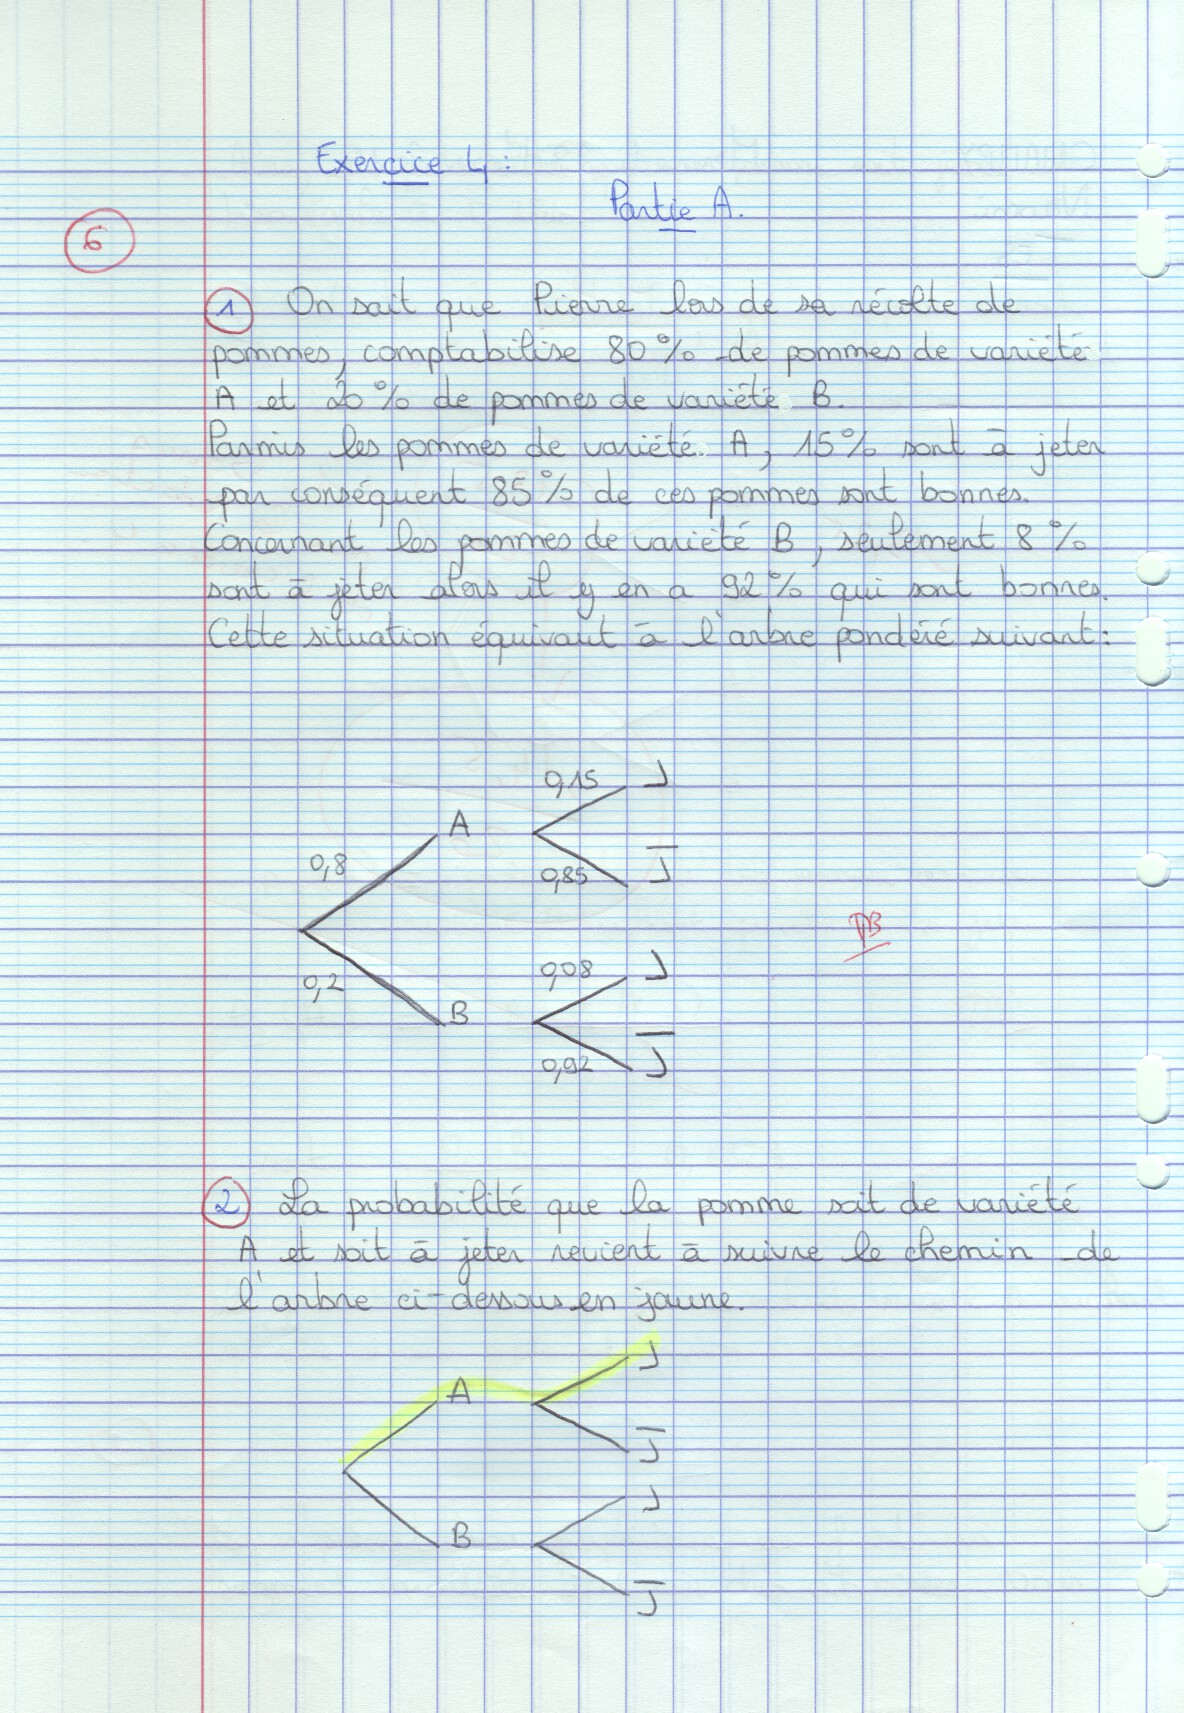 Exercice 4 :
Partie A.
6
1 On sait que Pierre lors de sa récolte de
pommes, comptabilise 80 % de pommes de variété
A et 20 % de pommes de variété B.
Parmis les pommes de variété A, 15 % sont à jeter
par conséquent 85 % de ces pommes sont bonnes.
Concernant les pommes de variété B, seulement 8 %
sont à jeter alors il y en a 92 % qui sont bonnes.
Cette situation équivaut à l'arbre pondéré suivant :
0,15 J
A
0,8
0,85 J̅
0,08 J
0,2
B
0,92 J̅
2 La probabilité que la pomme soit de variété
A et soit à jeter revient à suivre le chemin de
l'arbre ci-dessous en jaune.
J
A
J̅
J
B
J̅